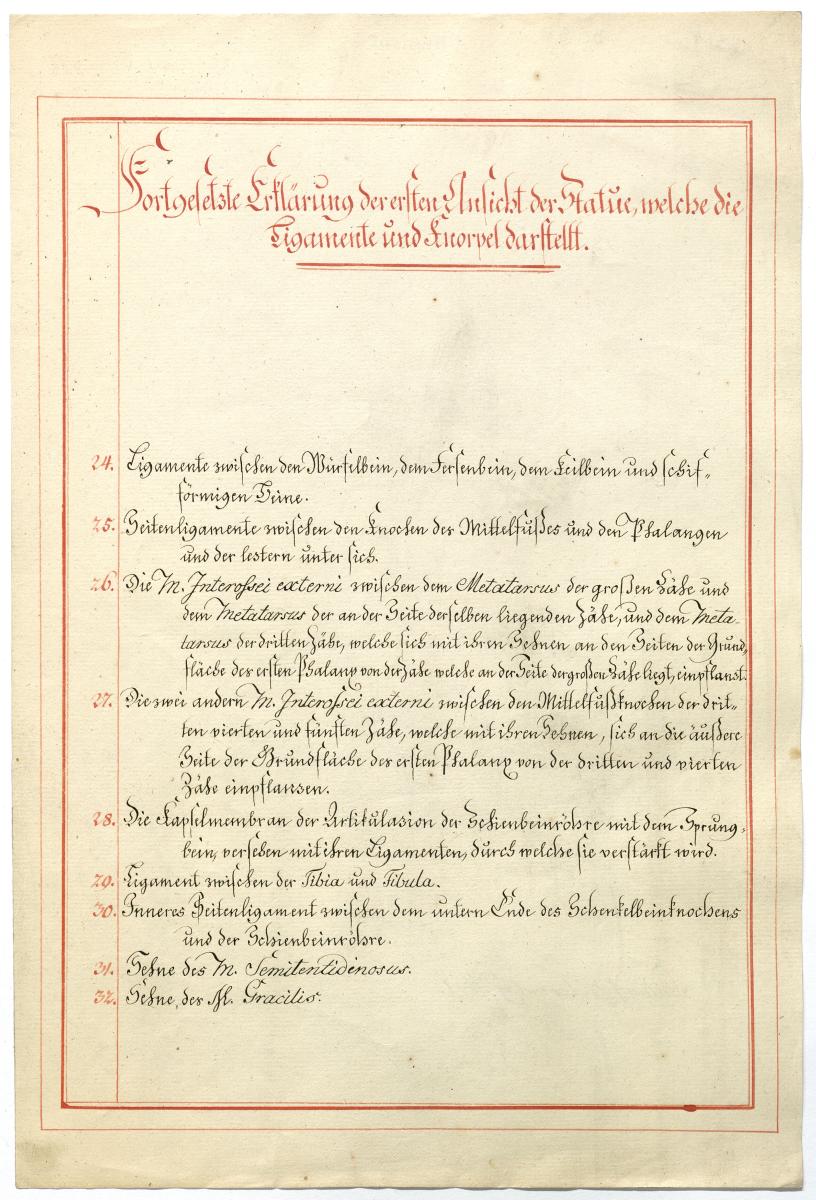 Fortgesetzte Erklärung der ersten Ansicht der Statue, welche die
Ligamente und Knorpel darstellt.
24. Ligamente zwischen den Würfelbein, dem Fersenbein, dem Keilbein und schif-
förmigen Beine.
25. Seitenligamente zwischen den Knochen des Mittelfußes und den Phalangen
und der lestern unter sich.
26. Die M. Interossei externi zwischen dem Metatarsus der großen Zähe und
dem Metatarsus der an der Seite derselben liegenden Zähe, und dem Meta-
tarsus der dritten Zähe, welche sich mit ihren Sehnen an den Seiten der Grund-
fläche des ersten Phalanx von der Zähe welche an der Seite der großen Zähe liegt, einpflanzt.
27. Die zwei andern M. Interossei externi zwischen den Mittelfußknochen der drit-
ten vierten und fünften Zähe, welche mit ihren Sehnen, sich an die äußere
Seite der Grundfläche des ersten Phalanx von der dritten und vierten
Zähe einpflanzen.
28. Die Kapselmembran der Artikulazion der Schienbeinröhre mit dem Sprung-
bein, versehen mit ihren Ligamenten, durch welche sie verstärkt wird.
29. Ligament zwischen der Tibia und Fibula.
30. Inneres Seitenligament zwischen dem untern Ende des Schenkelbeinknochens
und der Schienbeinröhre.
31. Sehne des M. Semitentidinosus.
32. Sehne, des M. Gracilis.